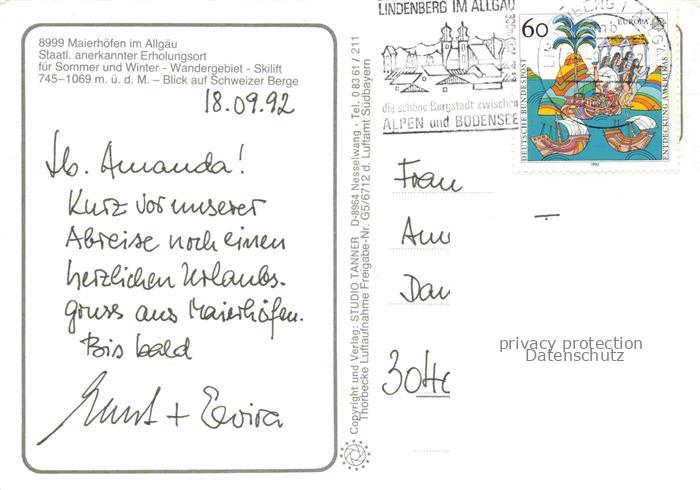 8999 Maierhöfen im Allgäu
Staatl. anerkannter Erholungsort
für Sommer und Winter - Wandergebiet - Skilift
745–1069 m. ü. d. M. – Blick auf Schweizer Berge
18.09.92
Lb. Amanda!
Kurz vor unserer
Abreise noch einen
herzlichen Urlaubs-
gruss aus Maierhöfen.
Bis bald
Copyright und Verlag: STUDIO TANNER D-8964 Nesselwang · Tel. 0 83 61 / 211
Thorbecke Luftaufnahme Freigabe-Nr. G5/6712 d. Luftamt Südbayern
LINDENBERG IM ALLGÄU
die schöne Bergstadt zwischen
ALPEN und BODENSEE
60
EUROPA
DEUTSCHE BUNDESPOST
ENTDECKUNG AMERIKAS
1992
Frau
privacy protection
Datenschutz